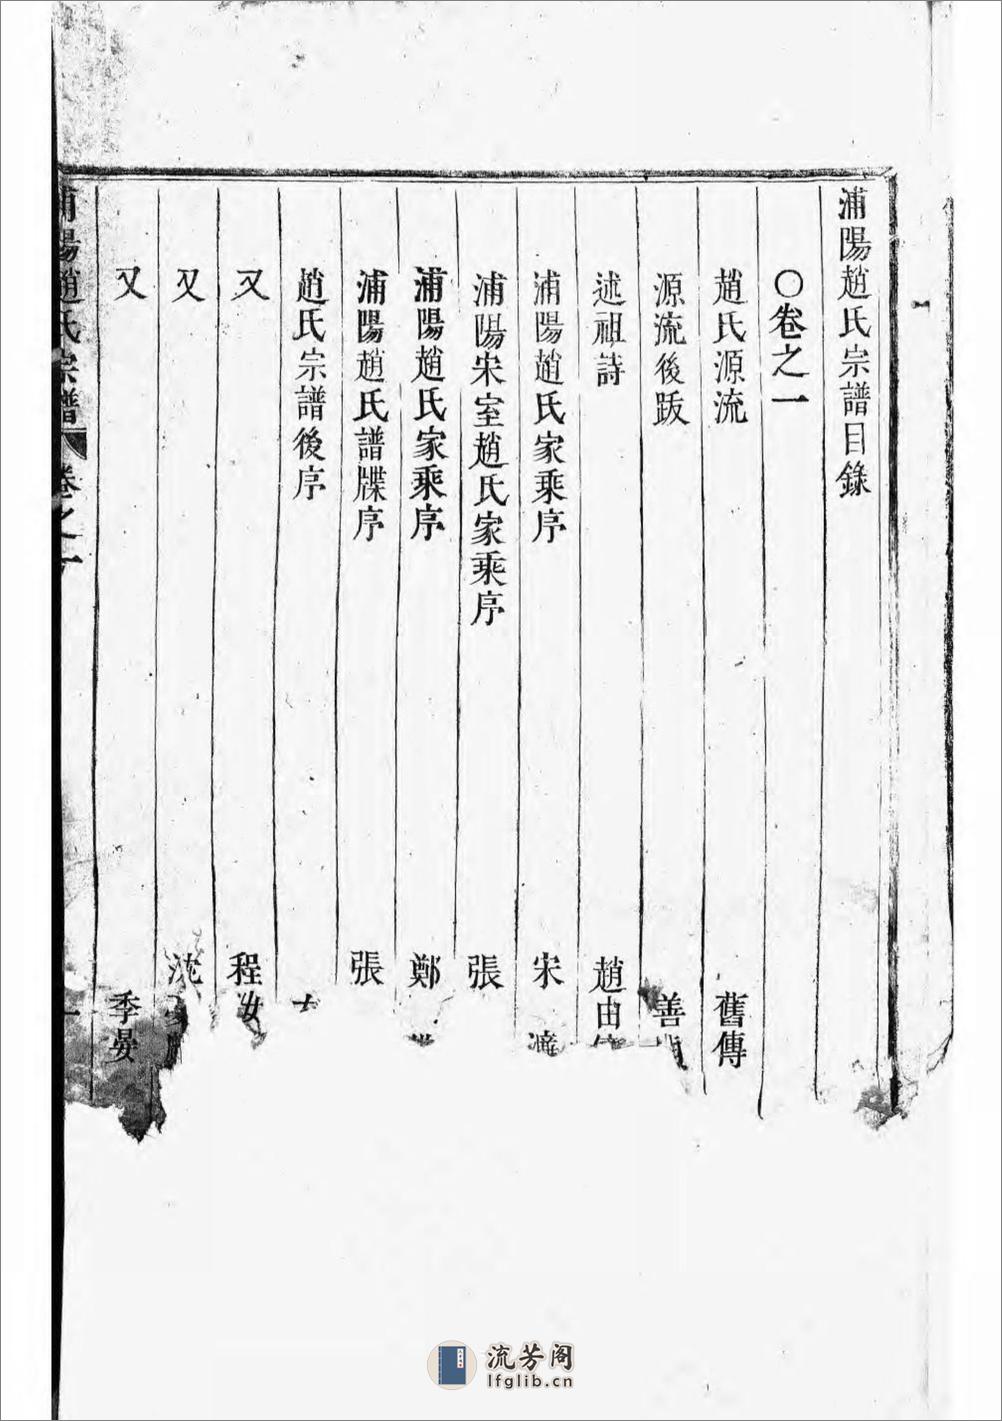 浦陽趙氏宗譜目錄
○卷之一
趙氏源流 舊傳
源流後跋 善
述祖詩 趙由
浦陽趙氏家乘序 宋 濂
浦陽宋室趙氏家乘序 張
浦陽趙氏家乘序 鄭
浦陽趙氏譜牒序 張
趙氏宗譜後序
又 程汝
又 沈
又 季晏
浦陽趙氏宗譜 卷之一
流芳阁
lfglib.cn